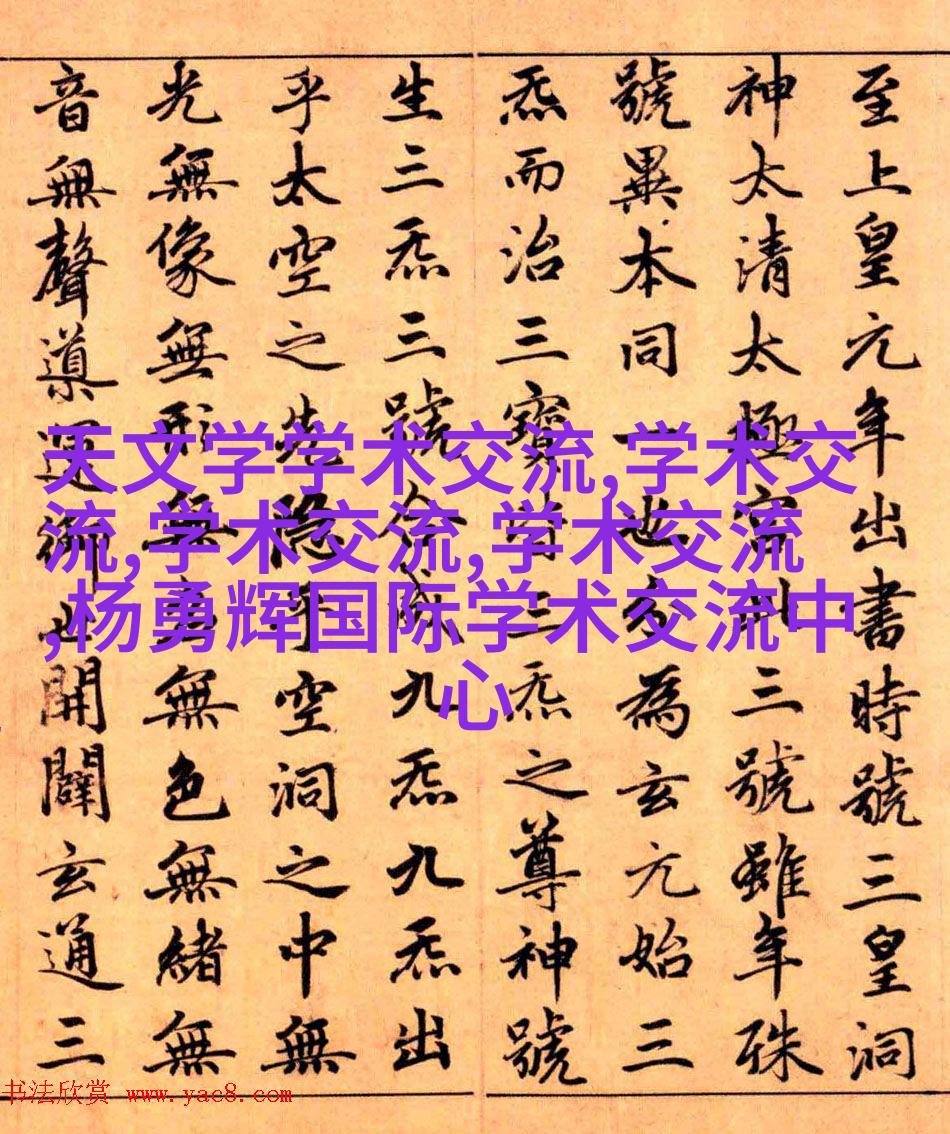 至上皇元年出書時號三皇洞
神太清太極宮此三號雖年殊
號異本同一也分為玄元始三
炁而治三寶皆三炁之尊神號
生三炁三號合成九炁九炁出
乎太空之先隱乎空洞之中無
光無像無形無名無色無緒無
音無聲導運御世開闢玄通三
天文学学术交流,学术交
流,学术交流,学术交流
,杨勇辉国际学术交流中
心
书法欣赏 www.yac8.com